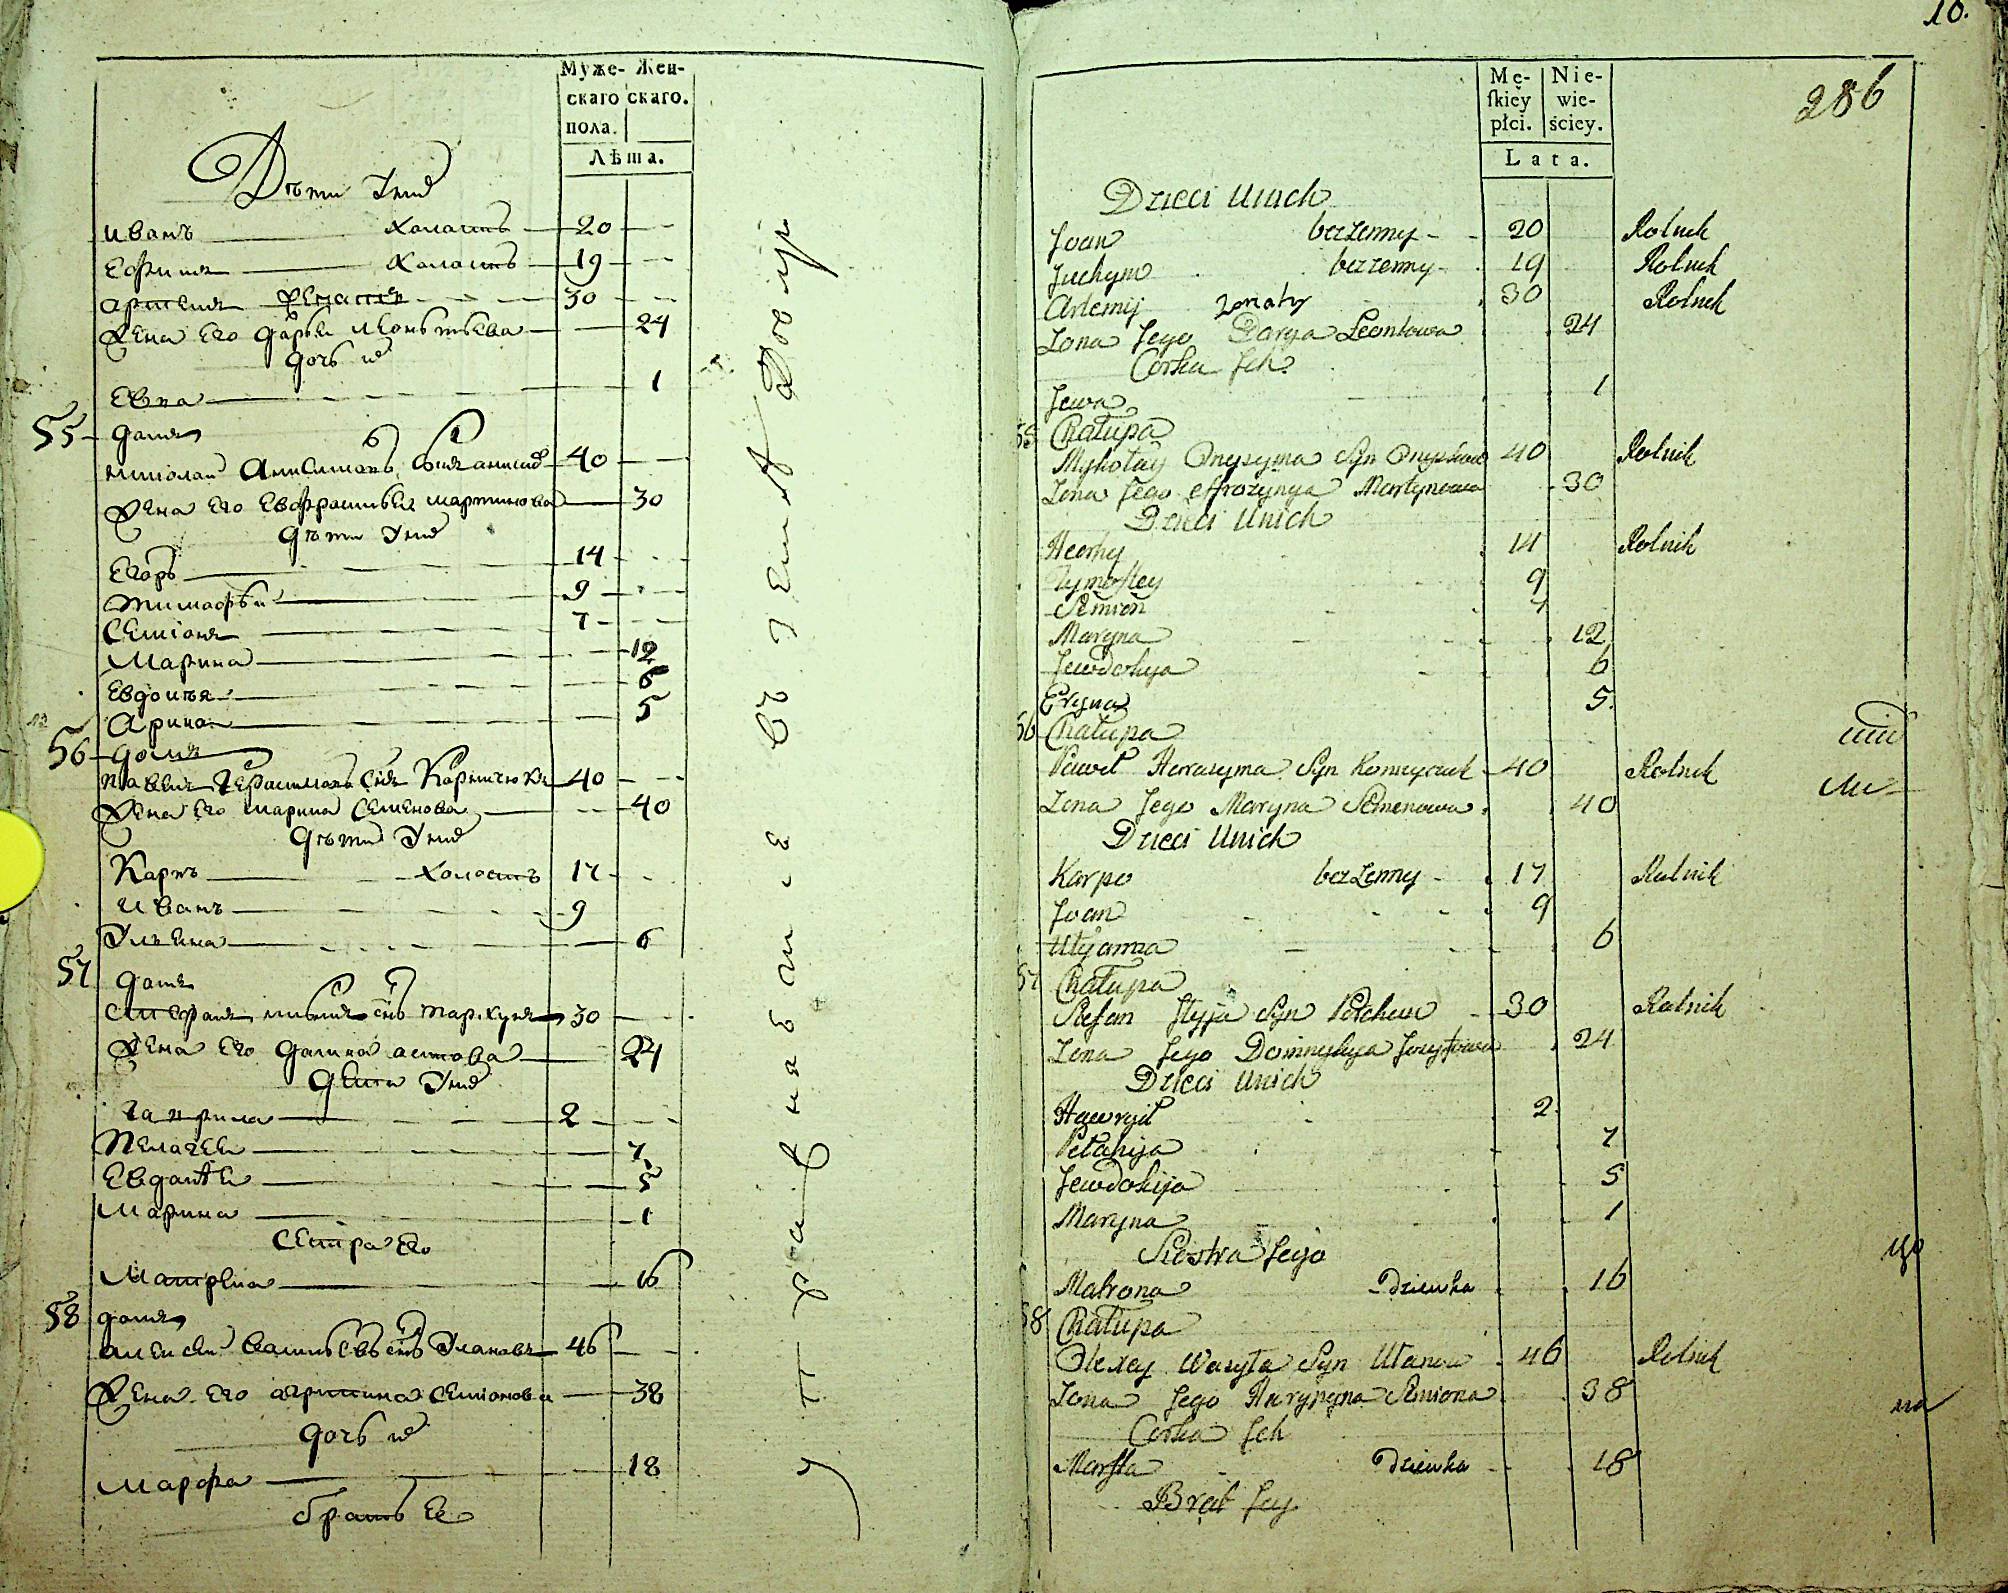 Муже- Жен-
скаго скаго.
пола.
Лѣта.
Дѣти У них
Иванъ холостъ 20
Ефимъ холостъ 19
Артемъ женатъ 30
Жена Его Дарья Леонтьева 24
дочь их
Евва 1
55 домъ
Николай Анисимовъ 40
Жена Его Евфросинья мартинова 30
дѣти У них
Егоръ 14
тимофѣй 9
Семіонъ 7
Марина 12
Евдокія 6
Арина 5
56 домъ
павелъ Герасимовъ сынъ 40
Жена Его марина Семенова 40
дѣти У них
Карпъ холостъ 17
Иванъ 9
Ульяна 6
57 домъ
Стефанъ 30
Жена Его 24
дети У них
Гаврила 2
Пелагея 7
Евдокѣя 5
Марина 1
Сестра Его
Матрена 16
58 домъ
алексей Васильевъ сынъ Улановъ 46
Жена Его агрипина Семіонова 38
дочь их
марфа 18
братъ Ее
10.
286
Mę- Nie-
ſkiéy wie-
płci. ściey.
Lata.
Dzieci Unich
Jvan bezżenny 20 Rolnik
Juchym bezżenny 19 Rolnik
Artemij żonaty 30 Rolnik
Żona Jego Darya Leonkowa 24
Corka Jch
Jewa 1
55 Chałupa
Mykołay Onyzyma Syn 40 Rolnik
Żona Jego Effrozynya Martynowa 30
Dzieci Unich
Heorhy 14 Rolnik
Tymoftey 9
Semion 7
Maryna 12
Jewdokija 6
Eryna 5
56 Chałupa
Paweł Harasyma Syn 40 Rolnik
Żona Jego Maryna Semenowa 40
Dzieci Unich
Karpo bezżenny 17 Rolnik
Jvan 9
Ulyanna 6
57 Chałupa
Stefan Syn 30 Rolnik
Żona Jego Dominykya Jozyfowa 24
Dzieci Unich
Hawrył 2
Pełahija 7
Jewdokija 5
Maryna 1
Siostra Jego
Matrona Dziewka 16
58 Chałupa
Olexey Wasyla Syn Ułanow 46 Rolnik
Żona Jego Semiona 38
Corka Jch
Marfta Dziewka 18
Brat Jey